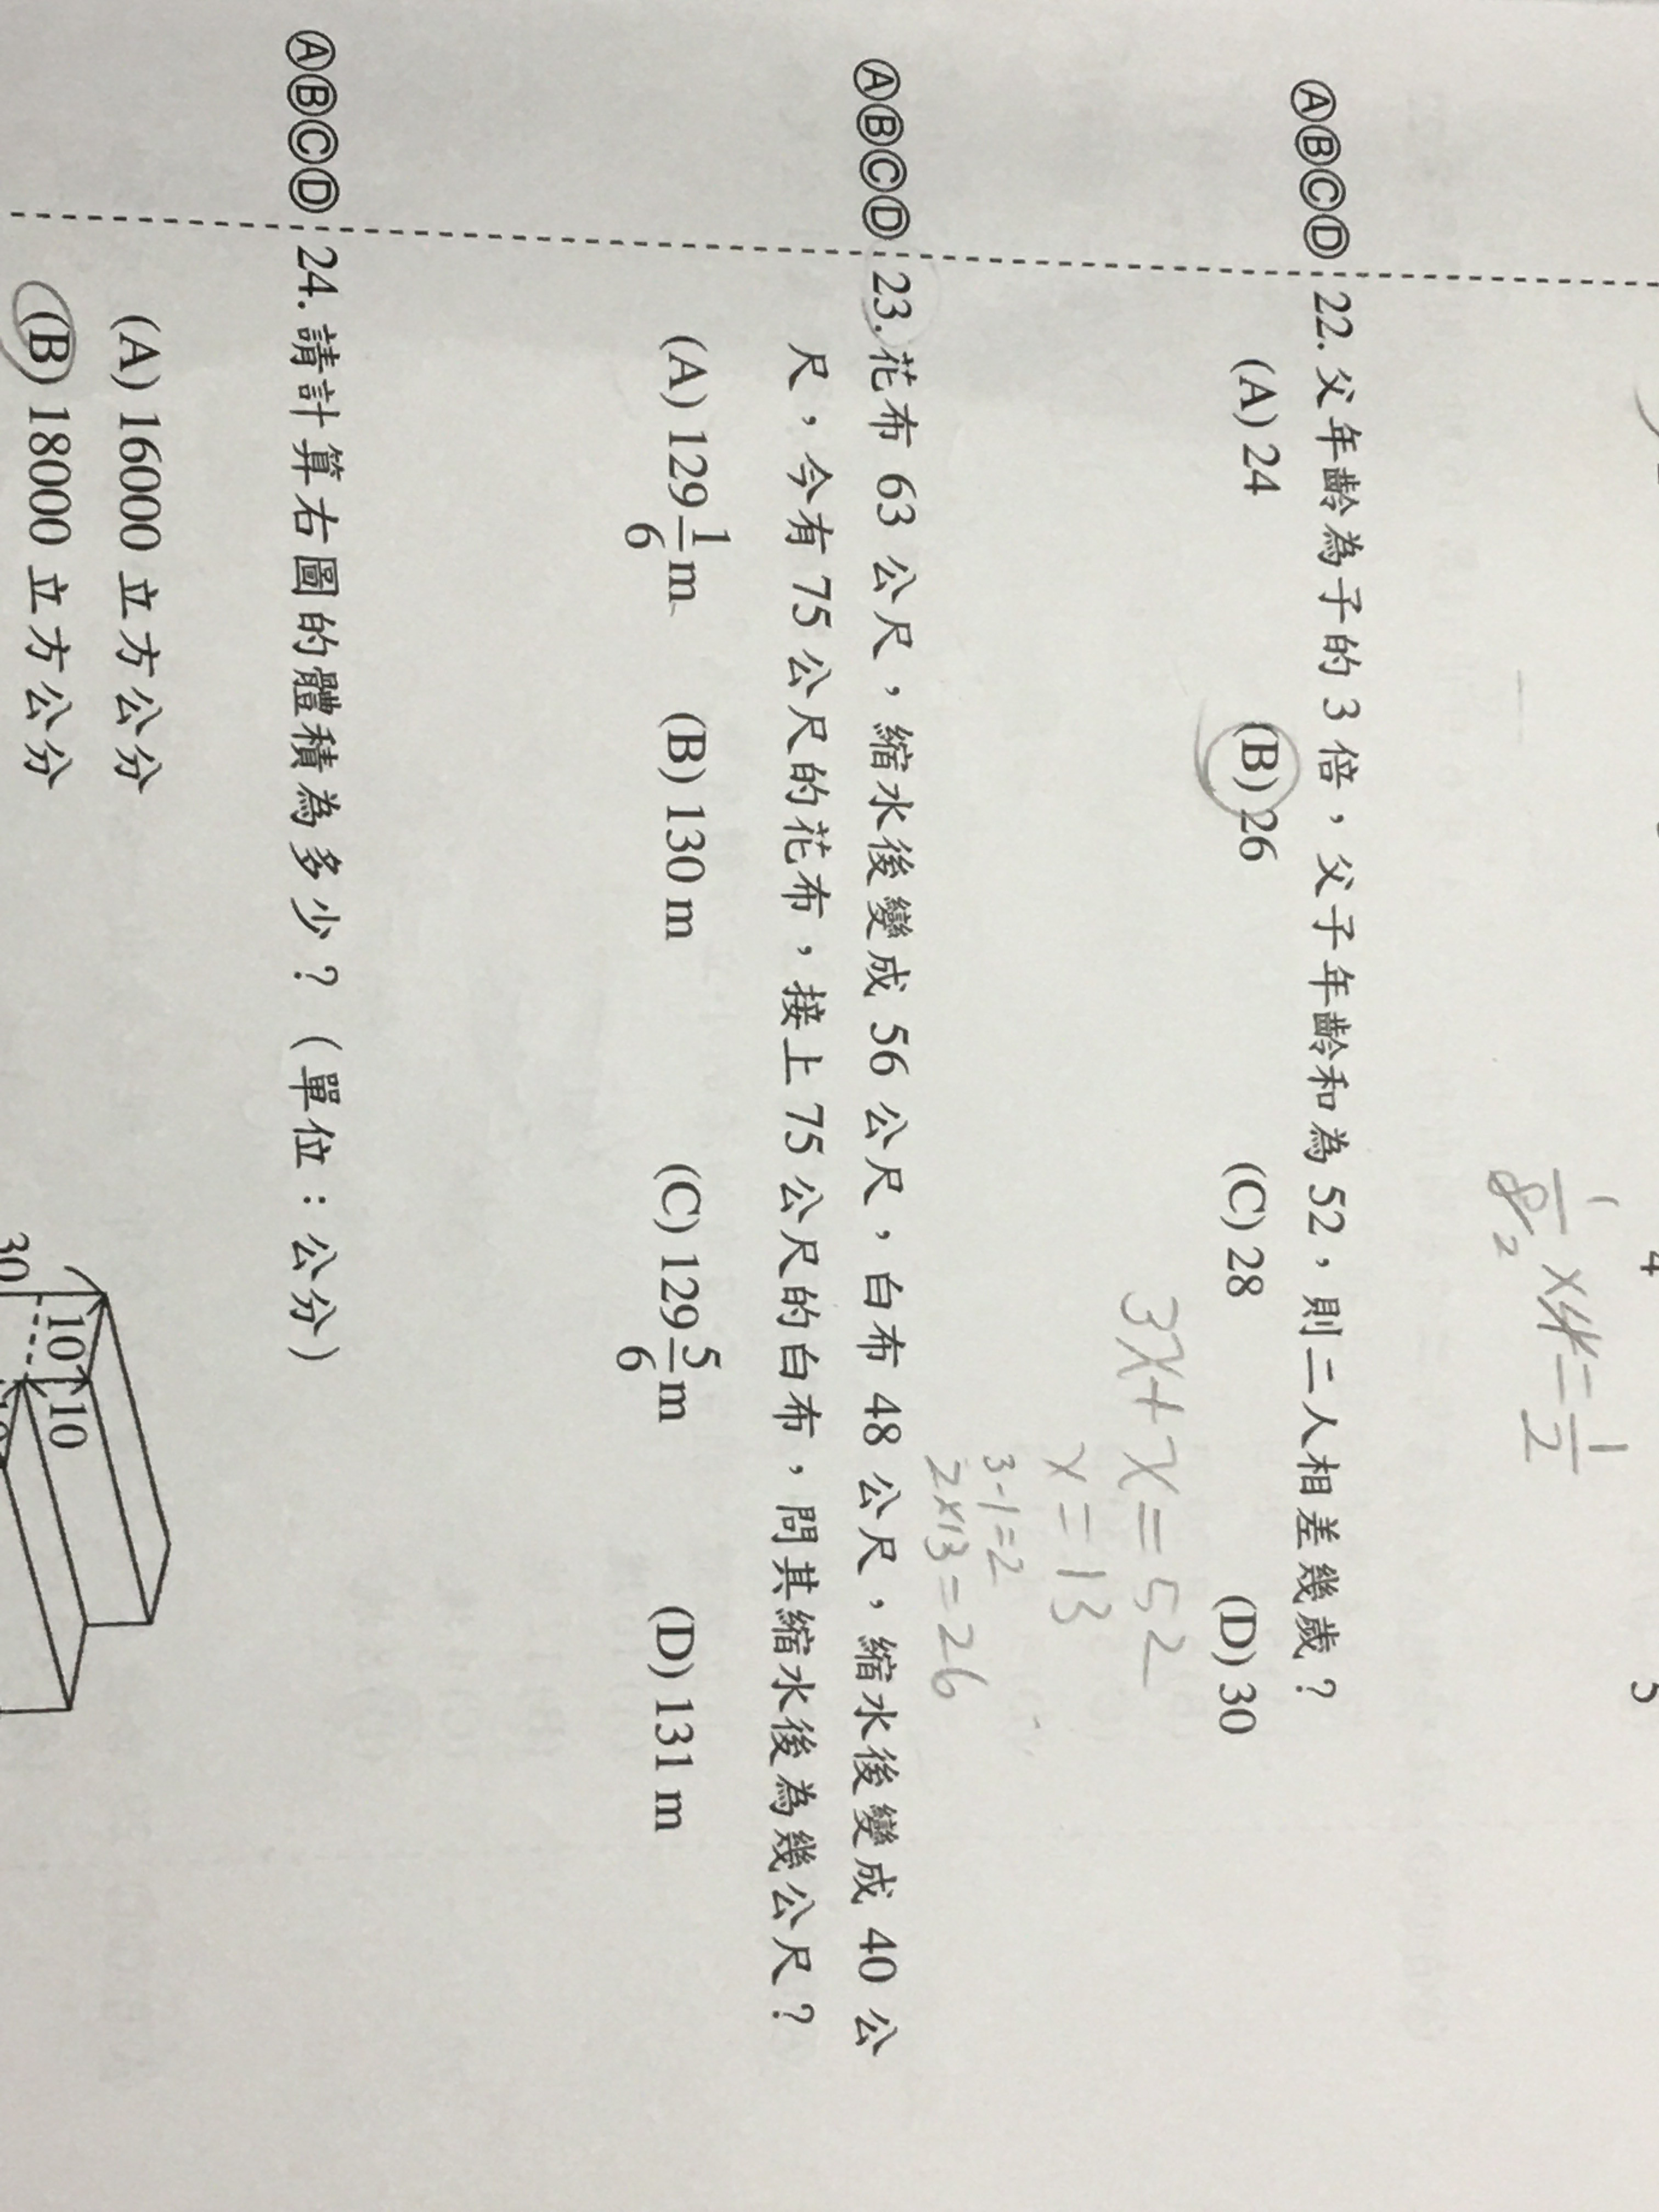 4
5
1/8 × 4 = 1/2
2
ⒶⒷⒸⒹ 22. 父年齡為子的 3 倍，父子年齡和為 52，則二人相差幾歲？
(A) 24 (B) 26 (C) 28 (D) 30
3x+x=52
x=13
3-1=2
2×13=26
ⒶⒷⒸⒹ 23. 花布 63 公尺，縮水後變成 56 公尺，白布 48 公尺，縮水後變成 40 公
尺，今有 75 公尺的花布，接上 75 公尺的白布，問其縮水後為幾公尺？
(A) 129 1/6 m (B) 130 m (C) 129 5/6 m (D) 131 m
ⒶⒷⒸⒹ 24. 請計算右圖的體積為多少？（單位：公分）
(A) 16000 立方公分
10
10
(B) 18000 立方公分
30
10